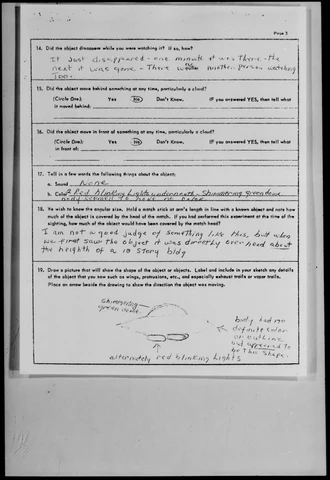 Page 3
14. Did the object disappear while you were watching it? If so, how?
It Just disappeared - one minute it was there - the
next it was gone - There was another person watching
Too.
15. Did the object move behind something at any time, particularly a cloud?
(Circle One): Yes No Don't Know. If you answered YES, then tell what
it moved behind:
16. Did the object move in front of something at any time, particularly a cloud?
(Circle One): Yes No Don't Know. If you answered YES, then tell what
in front of:
17. Tell in a few words the following things about the object:
a. Sound None
b. Color 2 Red blinking Lights underneath - Shimmering green
body seemed to have no
18. We wish to know the angular size. Hold a match stick at arm's length in line with a known object and note how
much of the object is covered by the head of the match. If you had performed this experiment at the time of the
sighting, how much of the object would have been covered by the match head?
I am not a good judge of something like this, but when
we first saw the object it was directly over-head about
the heighth of a 10 Story bldg
19. Draw a picture that will show the shape of the object or objects. Label and include in your sketch any details
of the object that you saw such as wings, protrusions, etc., and especially exhaust trails or vapor trails.
Place an arrow beside the drawing to show the direction the object was moving.
Shimmering
green
body had no
definite color
or outline
but appeared to
be this shape.
alternately red blinking Lights